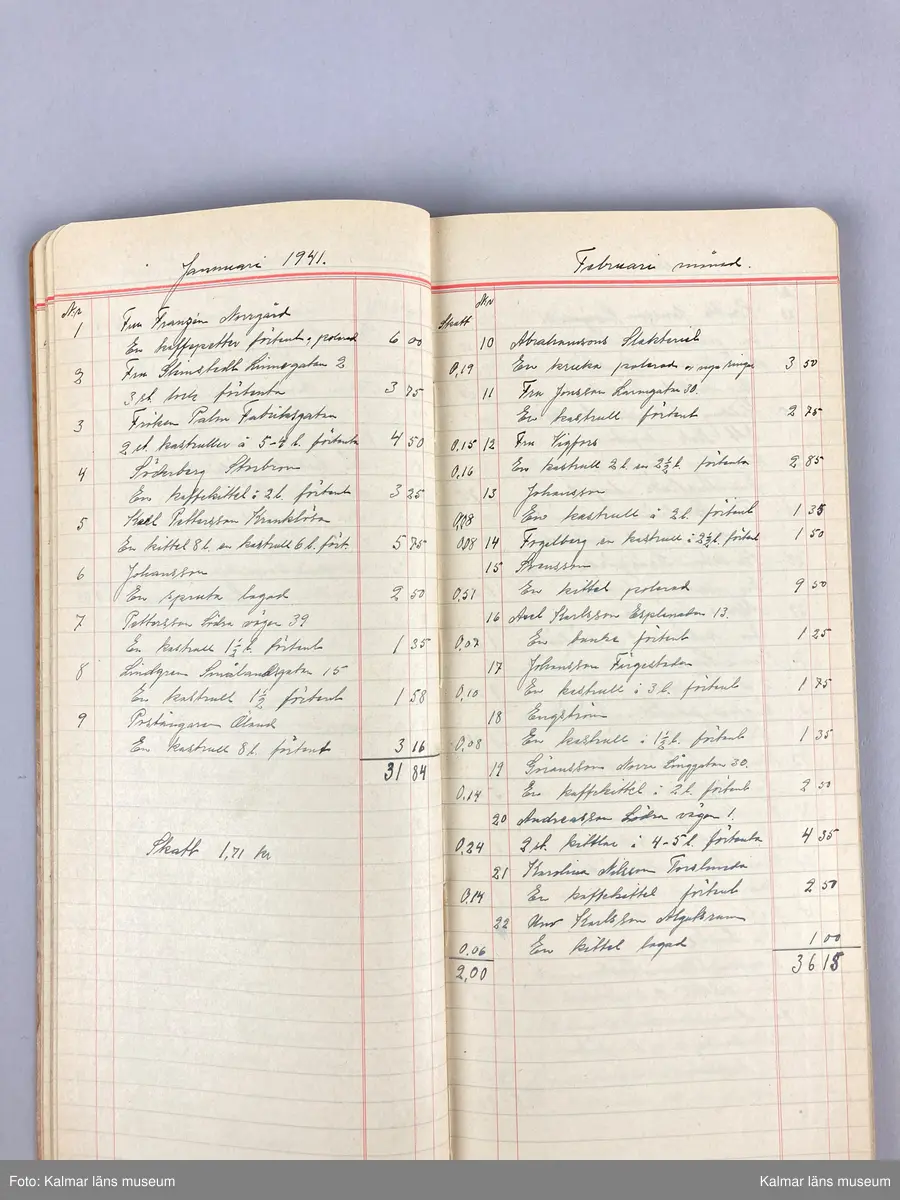 Januari 1941.
Nr
1 Fru Franzén Norrgård
En kaffepetter förtent, polerad 6 00
2 Fru Linnégatan 2
3 st. förtenta 3 75
3 Fröken Palm Fabriksgatan
2 st. kastruller à 5-4 l. förtenta 4 50
4 Söderberg
En kaffekittel i 2 l. förtent 3 25
5 Karl Pettersson
En kittel 8 l. en kastrull 6 l. fört. 5 75
6 Johansson
En spruta lagad 2 50
7 Pettersson Södra vägen 39
En kastrull 1½ l. förtent 1 35
8 Lindgren Smålandsgatan 15
En kastrull 1½ förtent 1 58
9 Öland
En kastrull 8 l. förtent 3 16
31 84
Skatt 1,71 kr
Februari månad.
Skatt Nr
10 Abrahamsons Slakteri
0,19 En kruka polerad o. nya ringar 3 50
11 Fru Jonsson 30.
En kastrull förtent 2 75
0,15 12 Fru Vigfors
0,16 En kastrull 2 l. en 2½ l. förtenta 2 85
13 Johansson
0,08 En kastrull à 2 l. förtent 1 35
0,08 14 Fogelberg en kastrull i 2½ l. förtent 1 50
15 Svensson
0,51 En kittel polerad 9 50
16 Axel Karlsson Esplanaden 13.
0,07 En förtent 1 25
17 Johansson Färgestaden
0,10 En kastrull i 3 l. förtent 1 75
18 Engström
0,08 En kastrull i 1½ l. förtent 1 35
19 Göransson Norra Långgatan 30.
0,14 En kaffekittel i 2 l. förtent 2 50
20 Andreasson Södra vägen 1.
0,24 2 st. kittlar i 4-5 l. förtenta 4 35
21 Karolina Nilsson Torslunda
0,14 En kaffekittel förtent 2 50
22 Karlsson Algutsrum
0,06 En kittel lagad 1 00
2,00 36 15
Foto: Kalmar läns museum
Kalmar läns museum